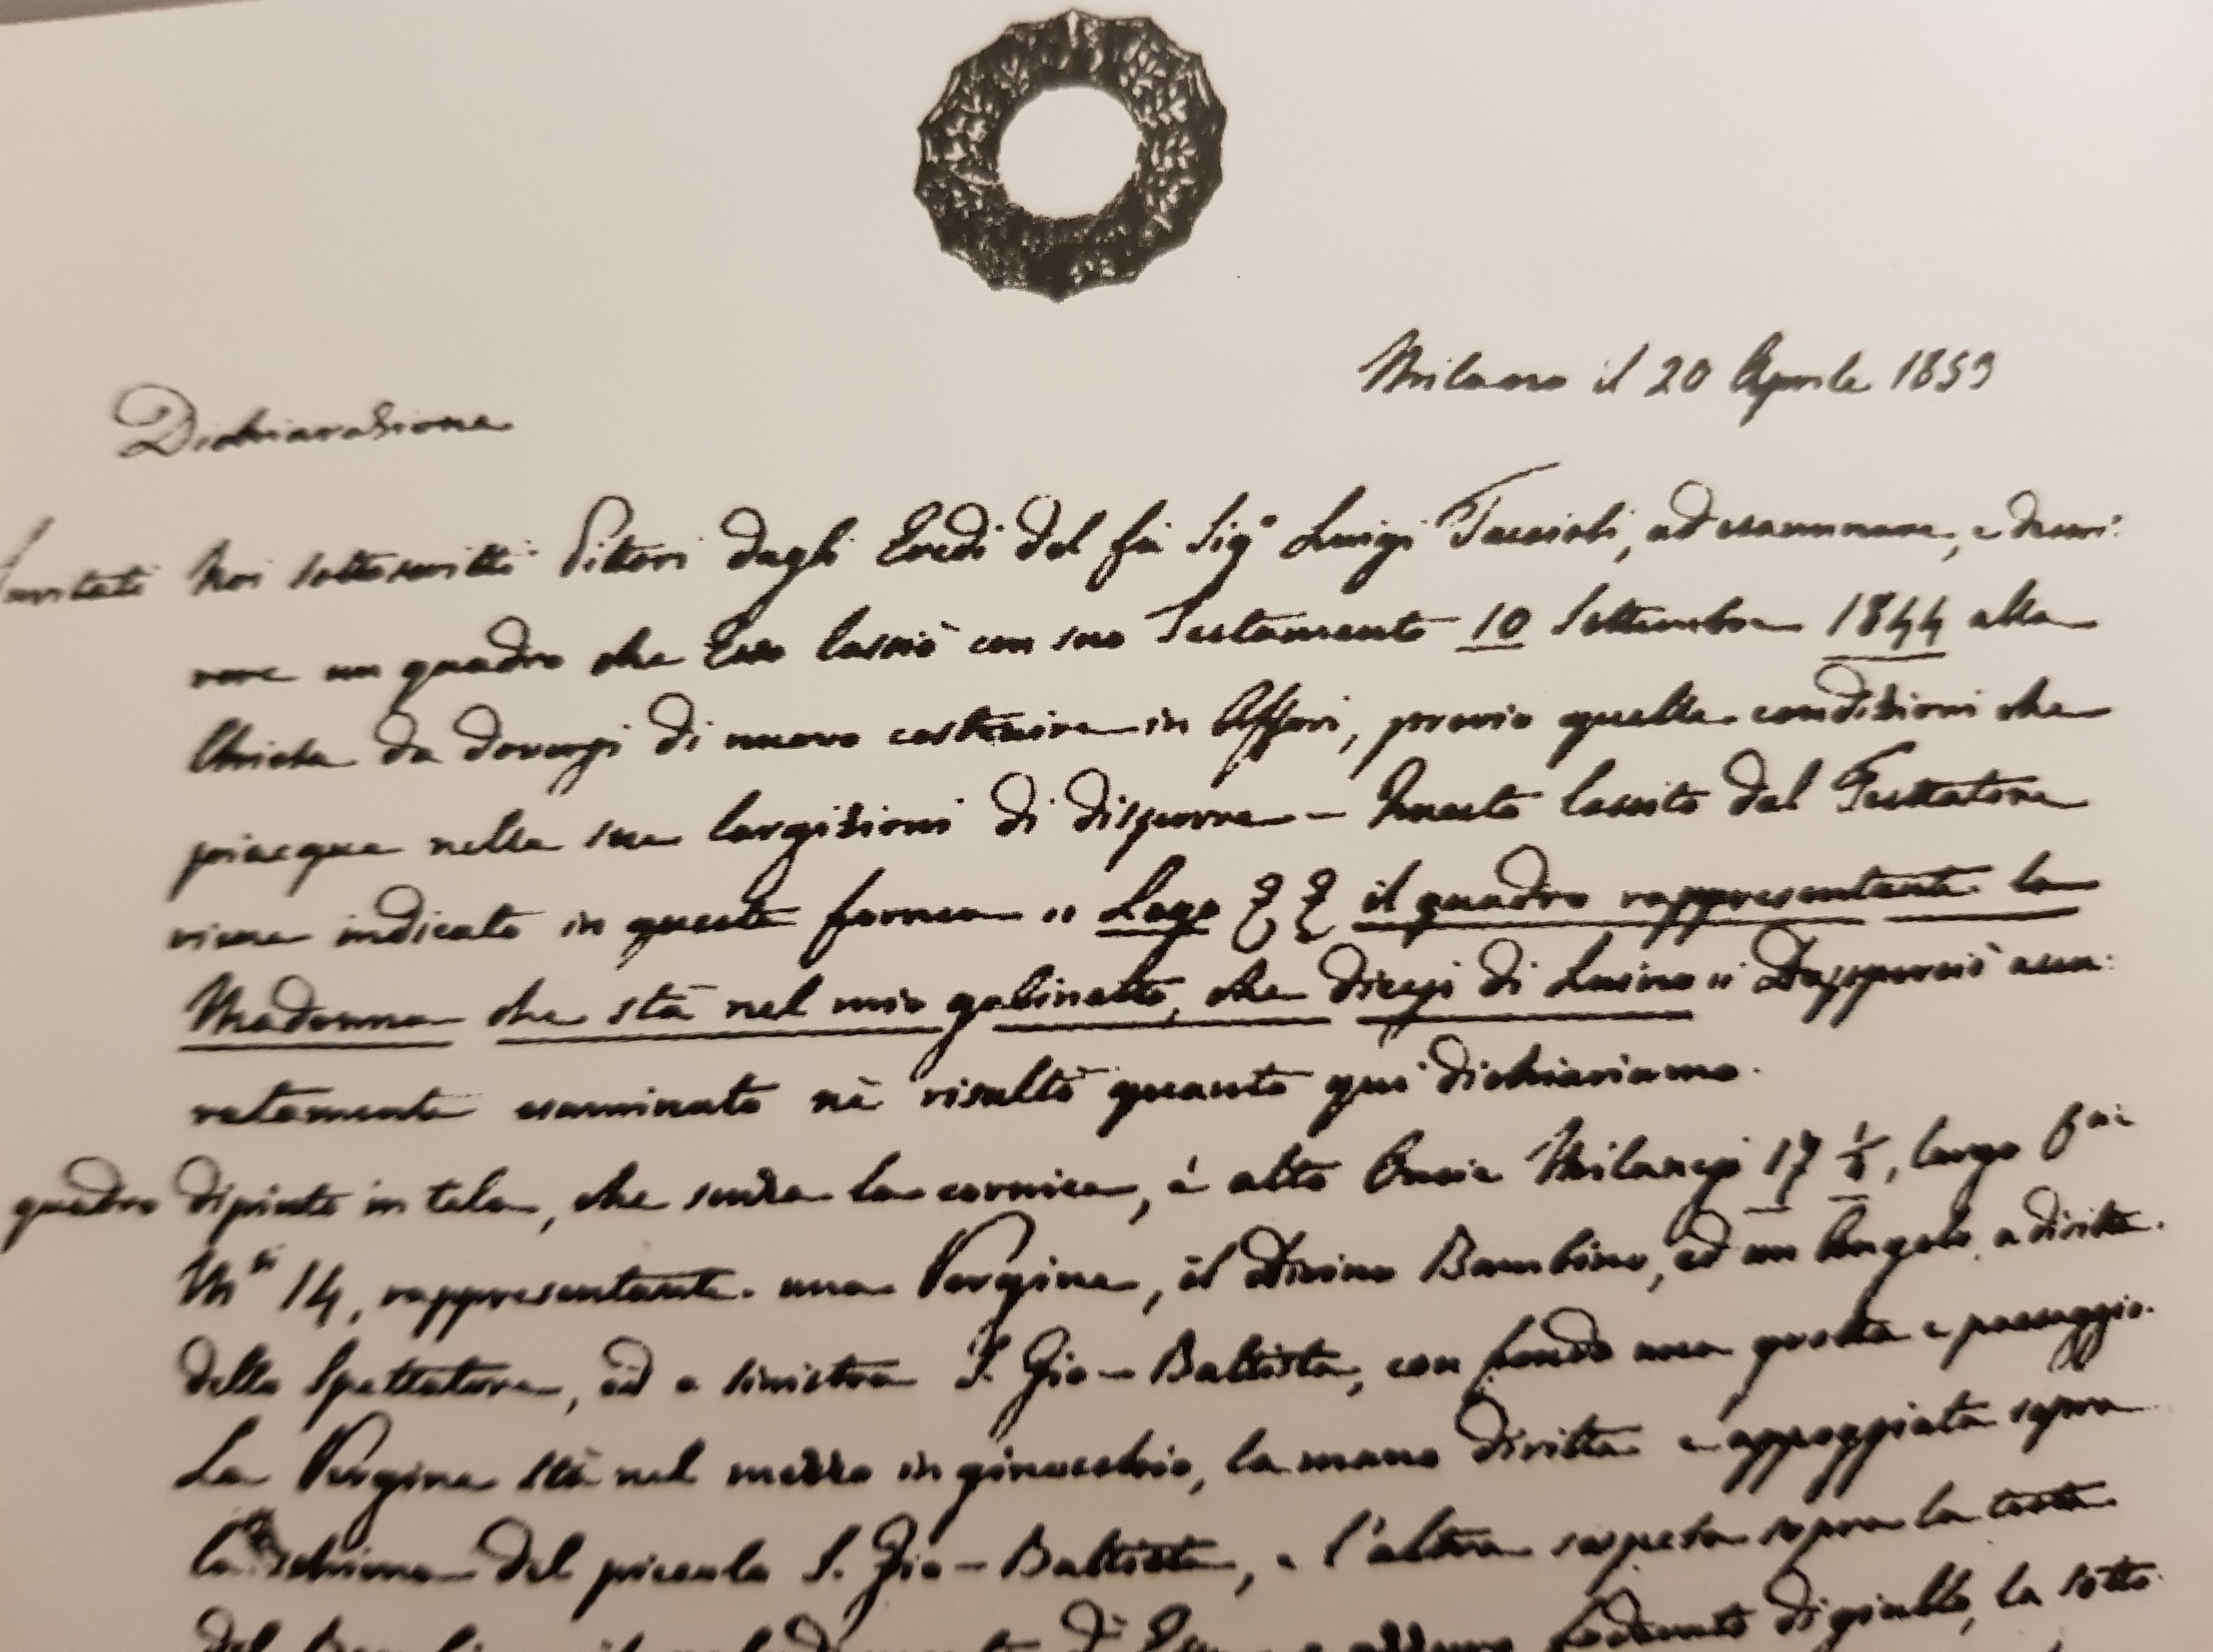 Milano il 20 Aprile 1859
Dichiarazione
Invitati Noi sottoscritti Pittori dagli Eredi del fù Sigr Luigi Taccioli, ad esaminare, e descri:
vere un quadro che Esso lasciò con suo Testamento 10 Settembre 1844 alla
Chiesa da doversi di nuovo costruire in Affori, previo quelle condizioni che
piacque nelle sue largizioni di disporre – Questo lascito dal Testatore
viene indicato in questa forma " Lego il quadro rappresentante la
Madonna che stà nel mio gabinetto, che dicesi di Luino " Dapperciò accu:
ratamente esaminato nè risultò quanto qui dichiariamo.
quadro dipinto in tela, che senza la cornice, è alto Oncie Milanesi 17 , largo
14, rappresentante una Vergine, il Divino Bambino, ed un Angelo a diritta
dello Spettatore, ed a sinistra S. Gio – Battista, con fondo una grotta e paesaggio.
La Vergine stà nel mezzo in ginocchio, la mano diritta e appoggiata sopra
la schiena del piccolo S. Gio – Battista, e l'altra sospesa sopra la testa
del Bambino, di giallo, la sotto: